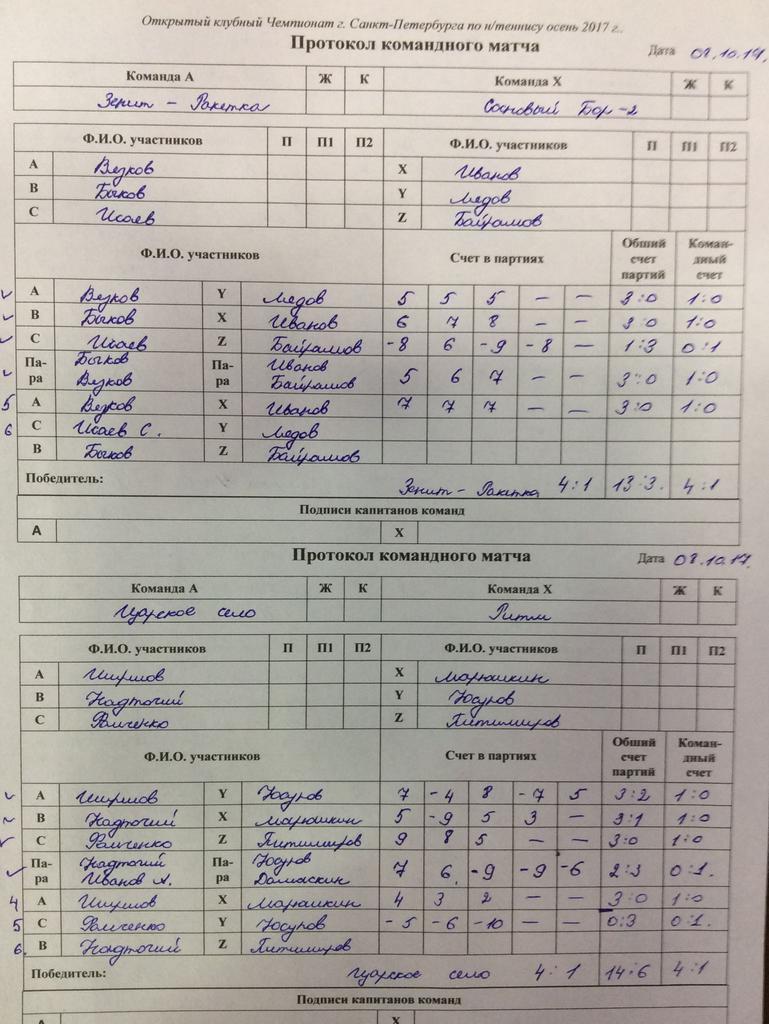 Открытый клубный Чемпионат г. Санкт-Петербурга по н/теннису осень 2017 г..
Протокол командного матча Дата 08.10.17.
Команда А Ж К Команда Х Ж К
Зенит - Ракетка Сосновый Бор-2
Ф.И.О. участников П П1 П2 Ф.И.О. участников П П1 П2
А Вязков Х Иванов
В Быков Y Медов
С Исаев Z Байрамов
Ф.И.О. участников Счет в партиях Общий счет партий Коман-дный счет
А Вязков Y Медов 5 5 5 – – 3:0 1:0
В Быков X Иванов 6 7 8 – – 3:0 1:0
С Исаев Z Байрамов -8 6 -9 -8 – 1:3 0:1
Па-ра Быков Вязков Па-ра Иванов Байрамов 5 6 7 – – 3:0 1:0
5 А Вязков X Иванов 7 7 7 – – 3:0 1:0
6 С Исаев С. Y Медов
В Быков Z Байрамов
Победитель: Зенит - Ракетка 4:1 13:3. 4:1
Подписи капитанов команд
А Х
Протокол командного матча Дата 08.10.17.
Команда А Ж К Команда Х Ж К
Царское село Ритм
Ф.И.О. участников П П1 П2 Ф.И.О. участников П П1 П2
А Ширшов Х Марюшкин
В Надточий Y Юсупов
С Фомченко Z Питимиров
Ф.И.О. участников Счет в партиях Общий счет партий Коман-дный счет
А Ширшов Y 7 -4 8 -7 5 3:2 1:0
В Надточий X Марюшкин 5 -9 5 3 – 3:1 1:0
С Z Питимиров 9 8 5 – – 3:0 1:0
Па-ра Надточий Иванов А. Па-ра Домаскин 7 6 -9 -9 -6 2:3 0:1.
4 А Ширшов X Марюшкин 4 3 2 – – 3:0 1:0
5 С Y -5 -6 -10 – – 0:3 0:1.
6. В Надточий Z Питимиров
Победитель: Царское село 4:1 14:6 4:1
Подписи капитанов команд
А Х